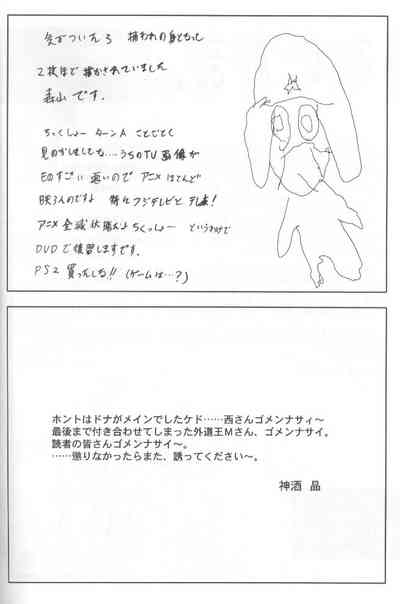 気がついたら 捕われの身となって
2枚ほど描かされていました
森山です.
ちっくしょー ターンA ことごとく
見のがしましても…うちのTV画像が
Eのすごい悪いので アニメ ほとんど
映らんのですよ 特にフジテレビと テレ東!
アニメ全滅状態んよ ちくっしょー というわけで
DVDで復習しますです.
PS2 買ったしる!! (ゲームは…?)
ホントはドナがメインでしたケド……西さんゴメンナサィ〜
最後まで付き合わせてしまった外道王Mさん、ゴメンナサイ。
読者の皆さんゴメンナサイ〜。
……懲りなかったらまた、誘ってください〜。
神酒 晶